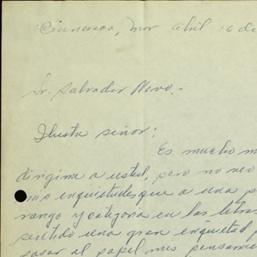 Cuernavaca, Mor Abril 16 de
Sr. Salvador Novo.-
Ilustre señor:
Es mucho m
dirigirme a usted, pero no
mis inquietudes, que a una p
rango y categoria en las letras
sentido una gran inquietud p
sacar al papel mis pensam